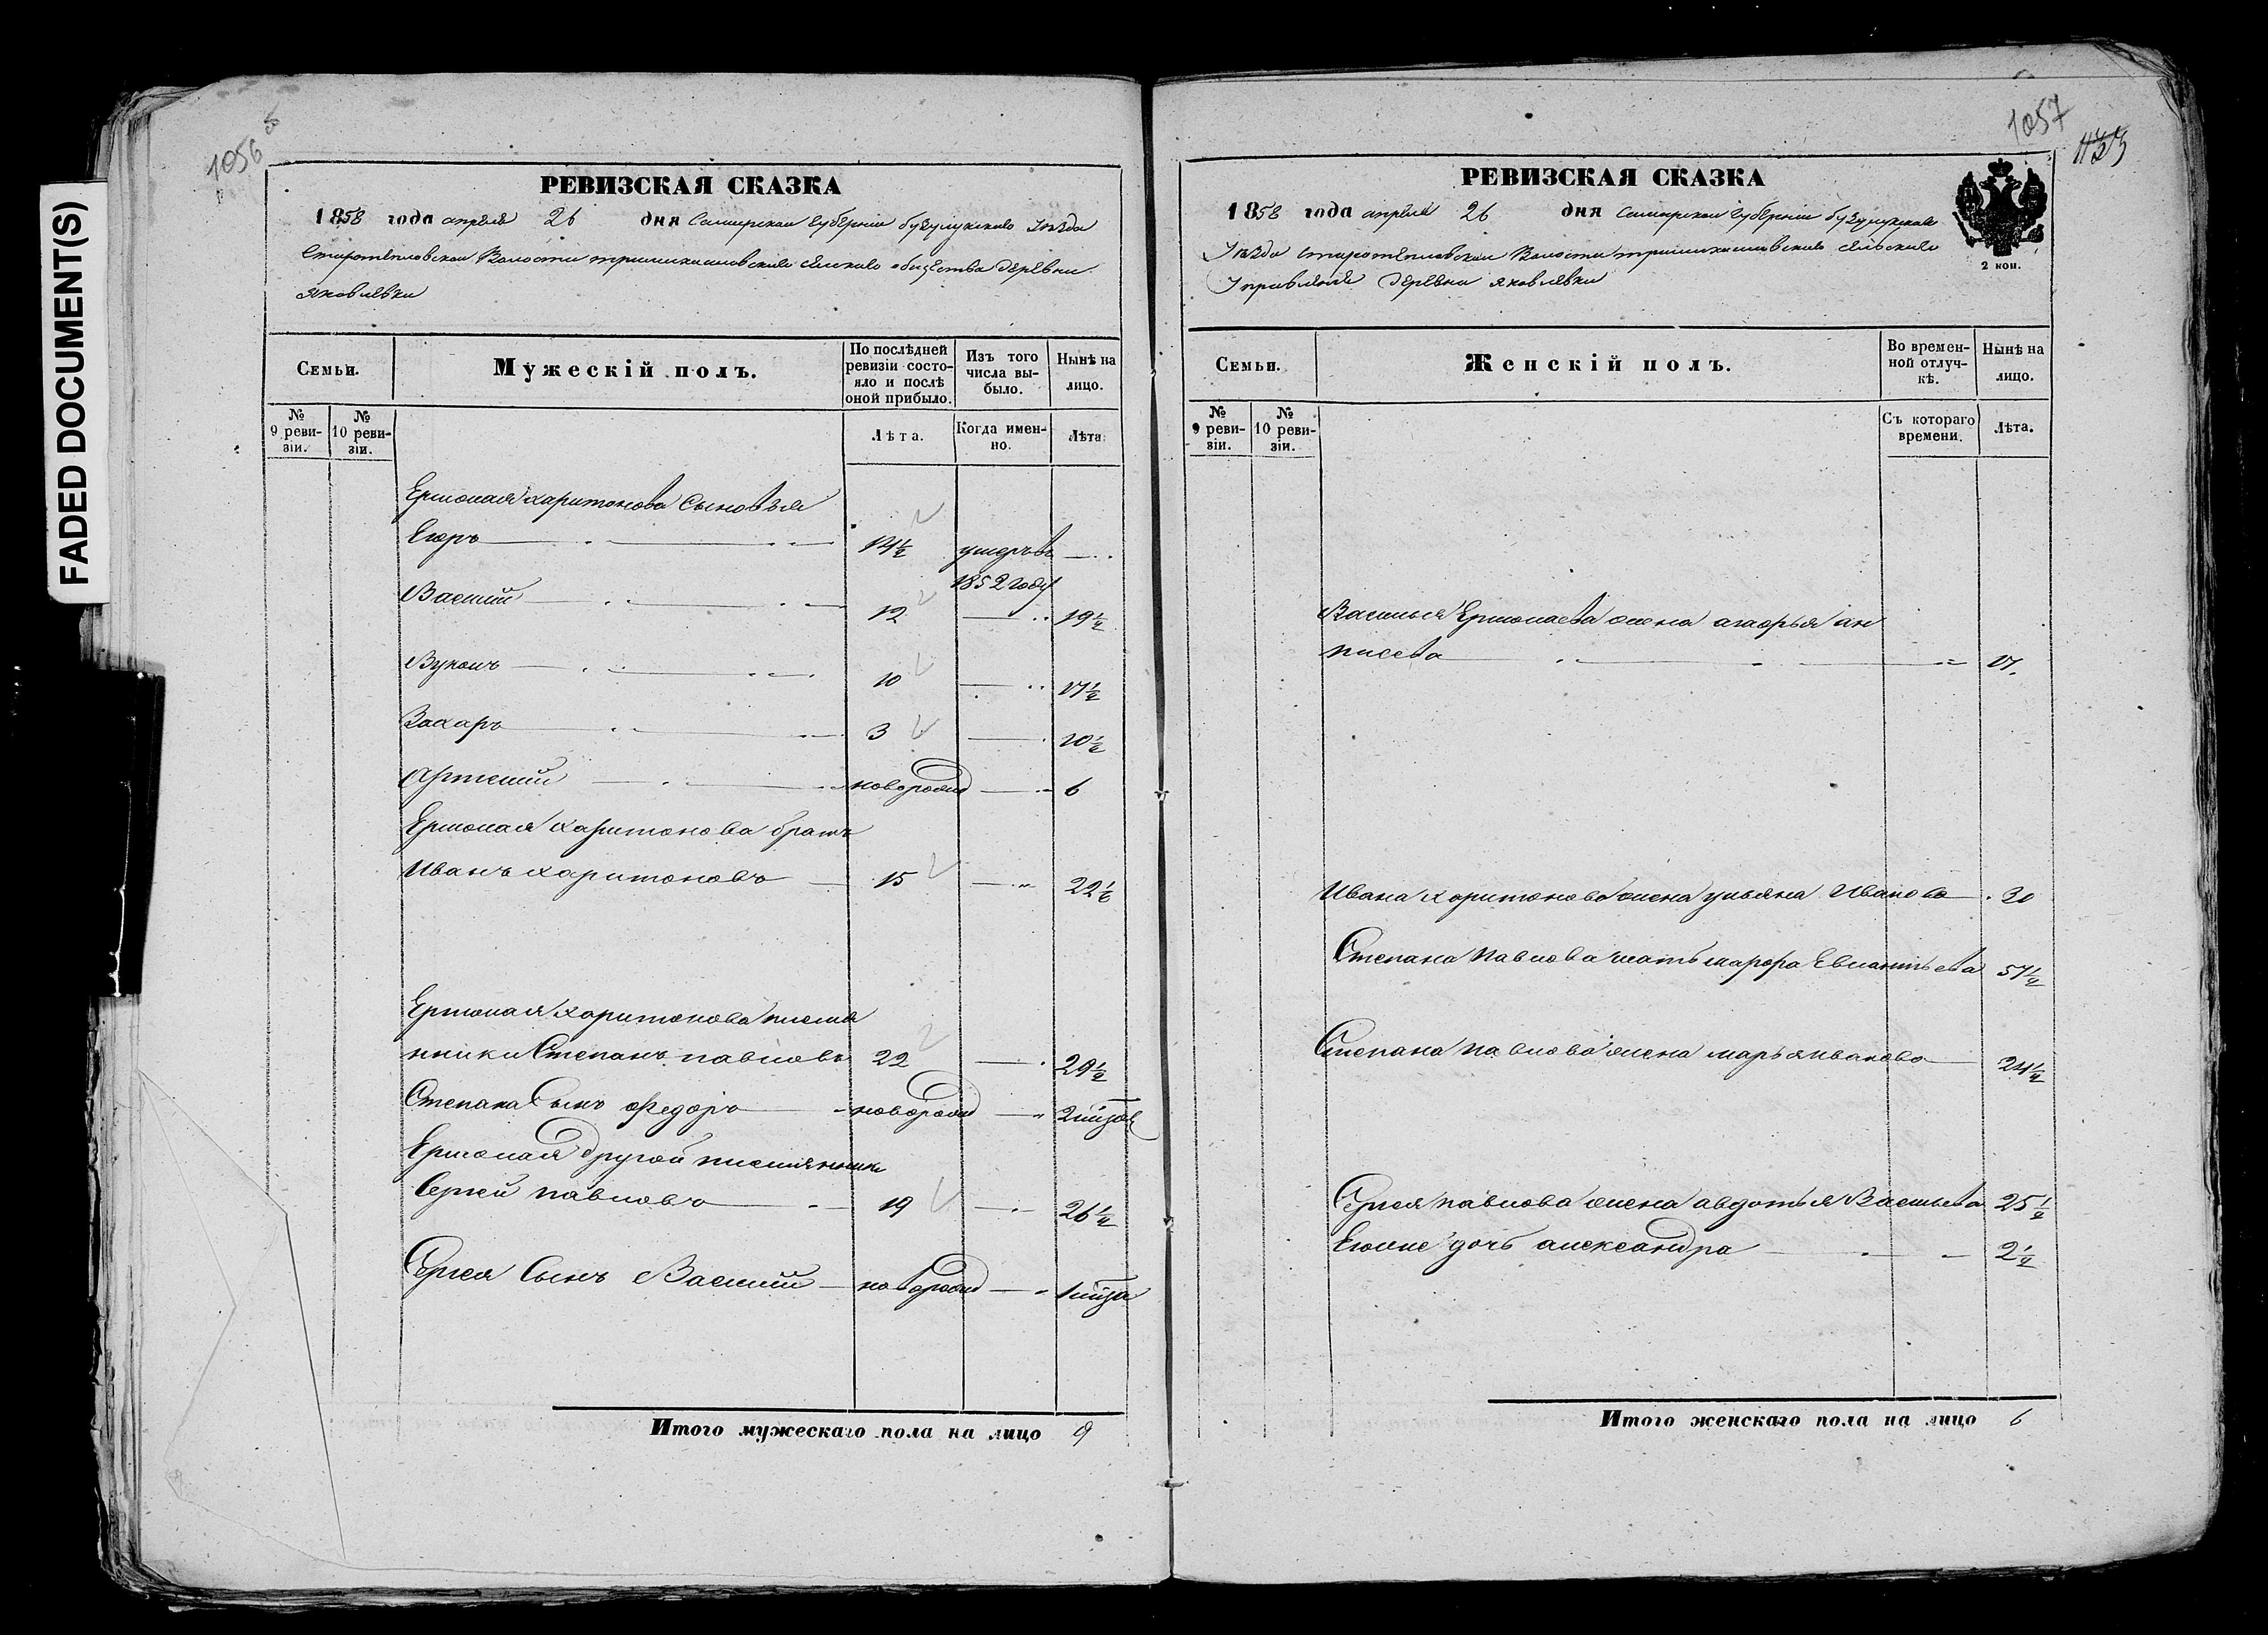 FADED DOCUMENT(S)
1056
РЕВИЗСКАЯ СКАЗКА
1858 года апреля 26 дня Самарской губернии бузулукского уезда
Старотепловской Волости сельского общества деревни
яковлевки
Семьи.
Мужескій полъ.
По послѣдней ревизіи состояло и послѣ оной прибыло.
Изъ того числа выбыло.
Нынѣ на лицо.
№ 9 ревизіи.
№ 10 ревизіи.
Лѣта.
Когда именно.
Лѣта
Ермолая харитонова Сыновья
Егоръ 14½ умеръ въ
1852 году
Василий 12 19½
Вуколъ 10 17½
Захаръ 3 10½
Артемий новорожд 6
Ермолая харитонова братъ
Иванъ харитоновъ 15 22½
Ермолая харитонова племя
нники Степанъ павловъ 22 29½
Степана Сынъ Федоръ новорожд
Ермолая другой племянникъ
Сергей павловъ 19 26½
Сергея Сынъ Василий новорожд
Итого мужескаго пола на лицо 9
1057
РЕВИЗСКАЯ СКАЗКА
1858 года апреля 26 дня Самарской губернии бузулукского
Уезда старотепловской Волости сельского
Управления деревни яковлевки
2 коп.
Семьи.
Женскій полъ.
Во временной отлучкѣ.
Нынѣ на лицо.
№ 9 ревизіи.
№ 10 ревизіи.
Съ котораго времени.
Лѣта.
Василья Ермолаева жена агафья ан
писева 17.
Ивана харитонова жена ульяна Иванова 30
Степана павлова мать марфа Евлантьева 57½
Степана павлова жена марья иванова 24½
Сергея павлова жена авдотья Васильева 25½
Егоже дочь александра 2½
Итого женскаго пола на лицо 6